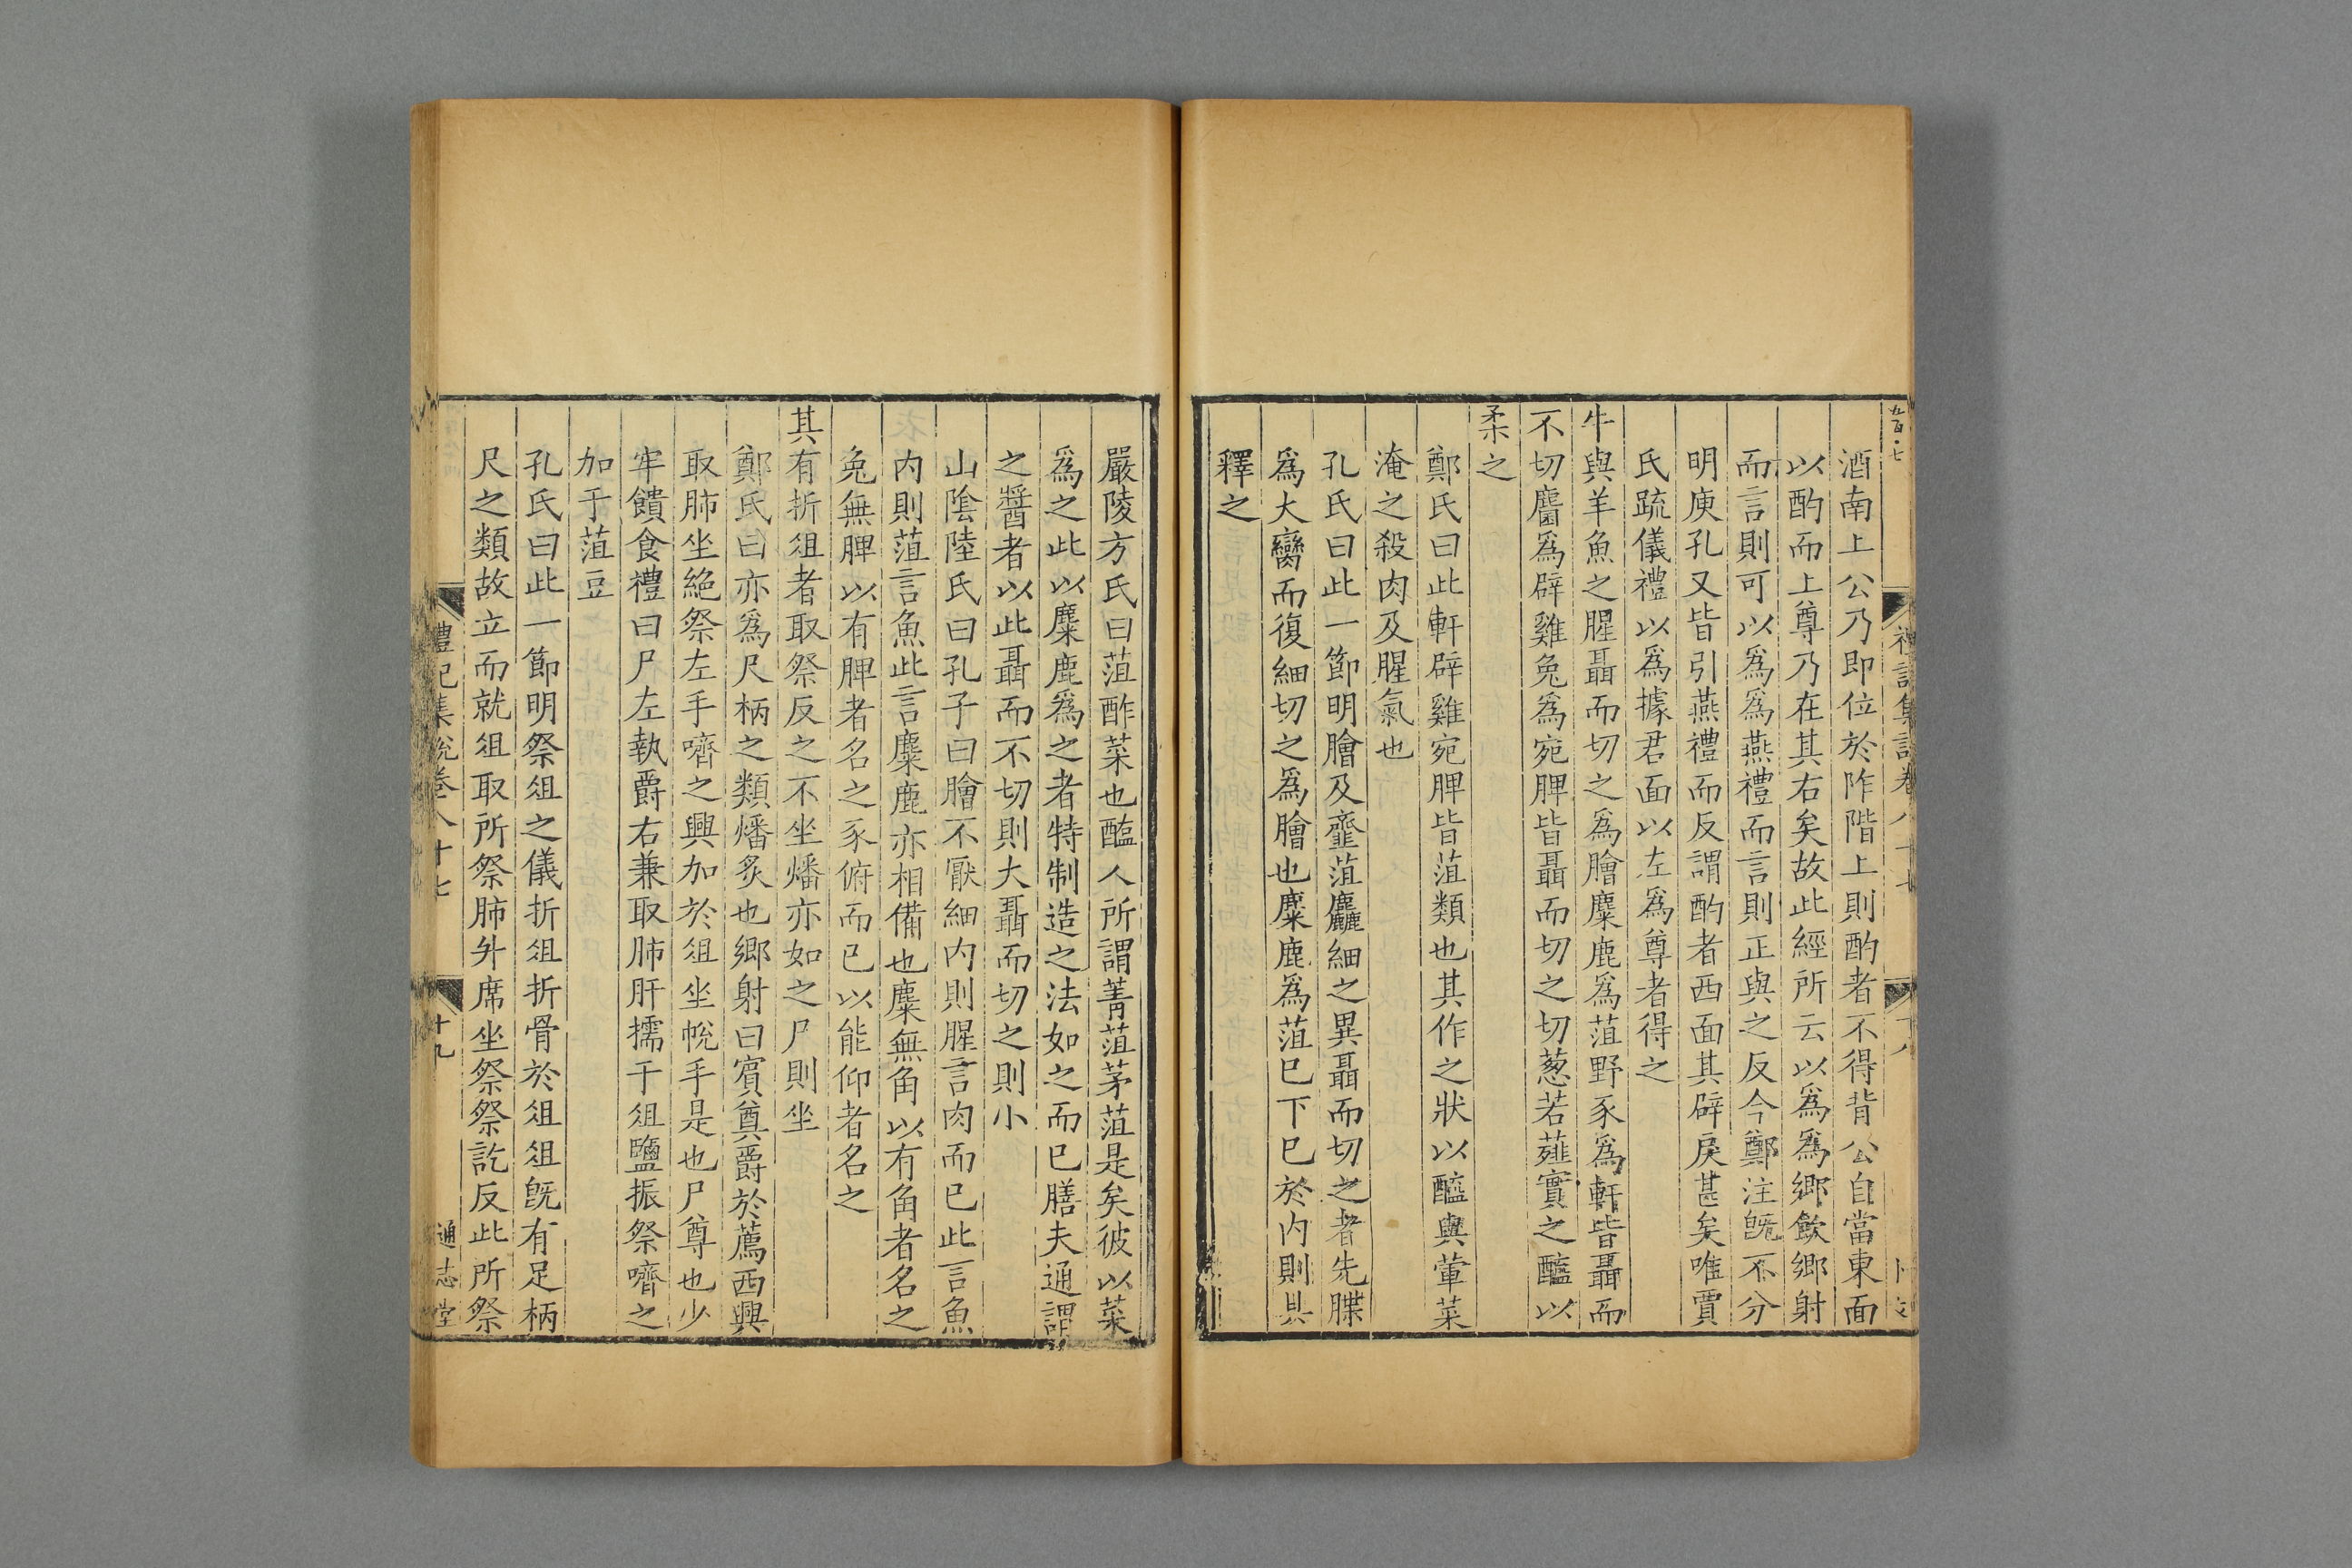 酒南上公乃即位於阼階上則酌者不得背公自當東面
以酌而上尊乃在其右矣故此經所云以爲爲鄉飲鄉射
而言則可以爲爲燕禮而言則正與之反今鄭注旣不分
明庾孔又皆引燕禮而反謂酌者西面其辟戾甚矣唯賈
氏疏儀禮以爲據君面以左爲尊者得之
牛與羊魚之腥聶而切之爲膾麋鹿爲菹野豕爲軒皆聶而
不切麕爲辟雞兔爲宛脾皆聶而切之切葱若薤實之醯以
柔之
鄭氏曰此軒辟雞宛脾皆菹類也其作之狀以醯與葷菜
淹之殺肉及腥氣也
孔氏曰此一節明膾及虀菹麤細之異聶而切之者先牒
爲大臠而復細切之爲膾也麋鹿爲菹已下已於内則具
釋之
嚴陵方氏曰菹酢菜也醢人所謂菁菹茅菹是矣彼以菜
爲之此以麋鹿爲之者特制造之法如之而已膳夫通謂
之醬者以此聶而不切則大聶而切之則小
山陰陸氏曰孔子曰膾不厭細内則腥言肉而已此言魚
内則菹言魚此言麋鹿亦相備也麋無角以有角者名之
兔無脾以有脾者名之豕俯而已以能仰者名之
其有折俎者取祭反之不坐燔亦如之尸則坐
鄭氏曰亦爲尺柄之類燔炙也鄉射曰賓奠爵於薦西興
取肺坐絶祭左手嚌之興加於俎坐帨手是也尸尊也少
牢饋食禮曰尸左執爵右兼取肺肝擩于俎鹽振祭嚌之
加于菹豆
孔氏曰此一節明祭俎之儀折俎折骨於俎俎旣有足柄
尺之類故立而就俎取所祭肺升席坐祭祭訖反此所祭
禮記集說卷八十七
十九
通志堂